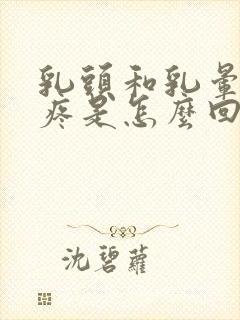 乳頭和乳暈
疼是怎麼回
沈碧蘿